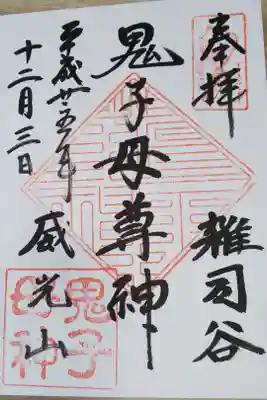 奉拝
雑司谷
鬼子母尊神
威光山
平成廿五年
十二月三日
鬼子
母神